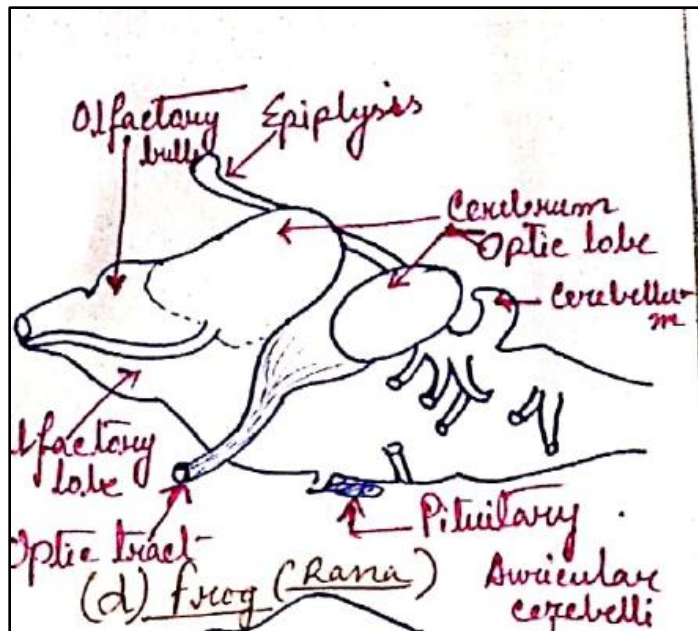 Olfactory
bulb
Epiplysis
Cerebrum
Optic lobe
Cerebellu-
m
lfactory
lobe
Optic tract
Pituitary
(d) frog (Rana)
Auricular
cerebelli